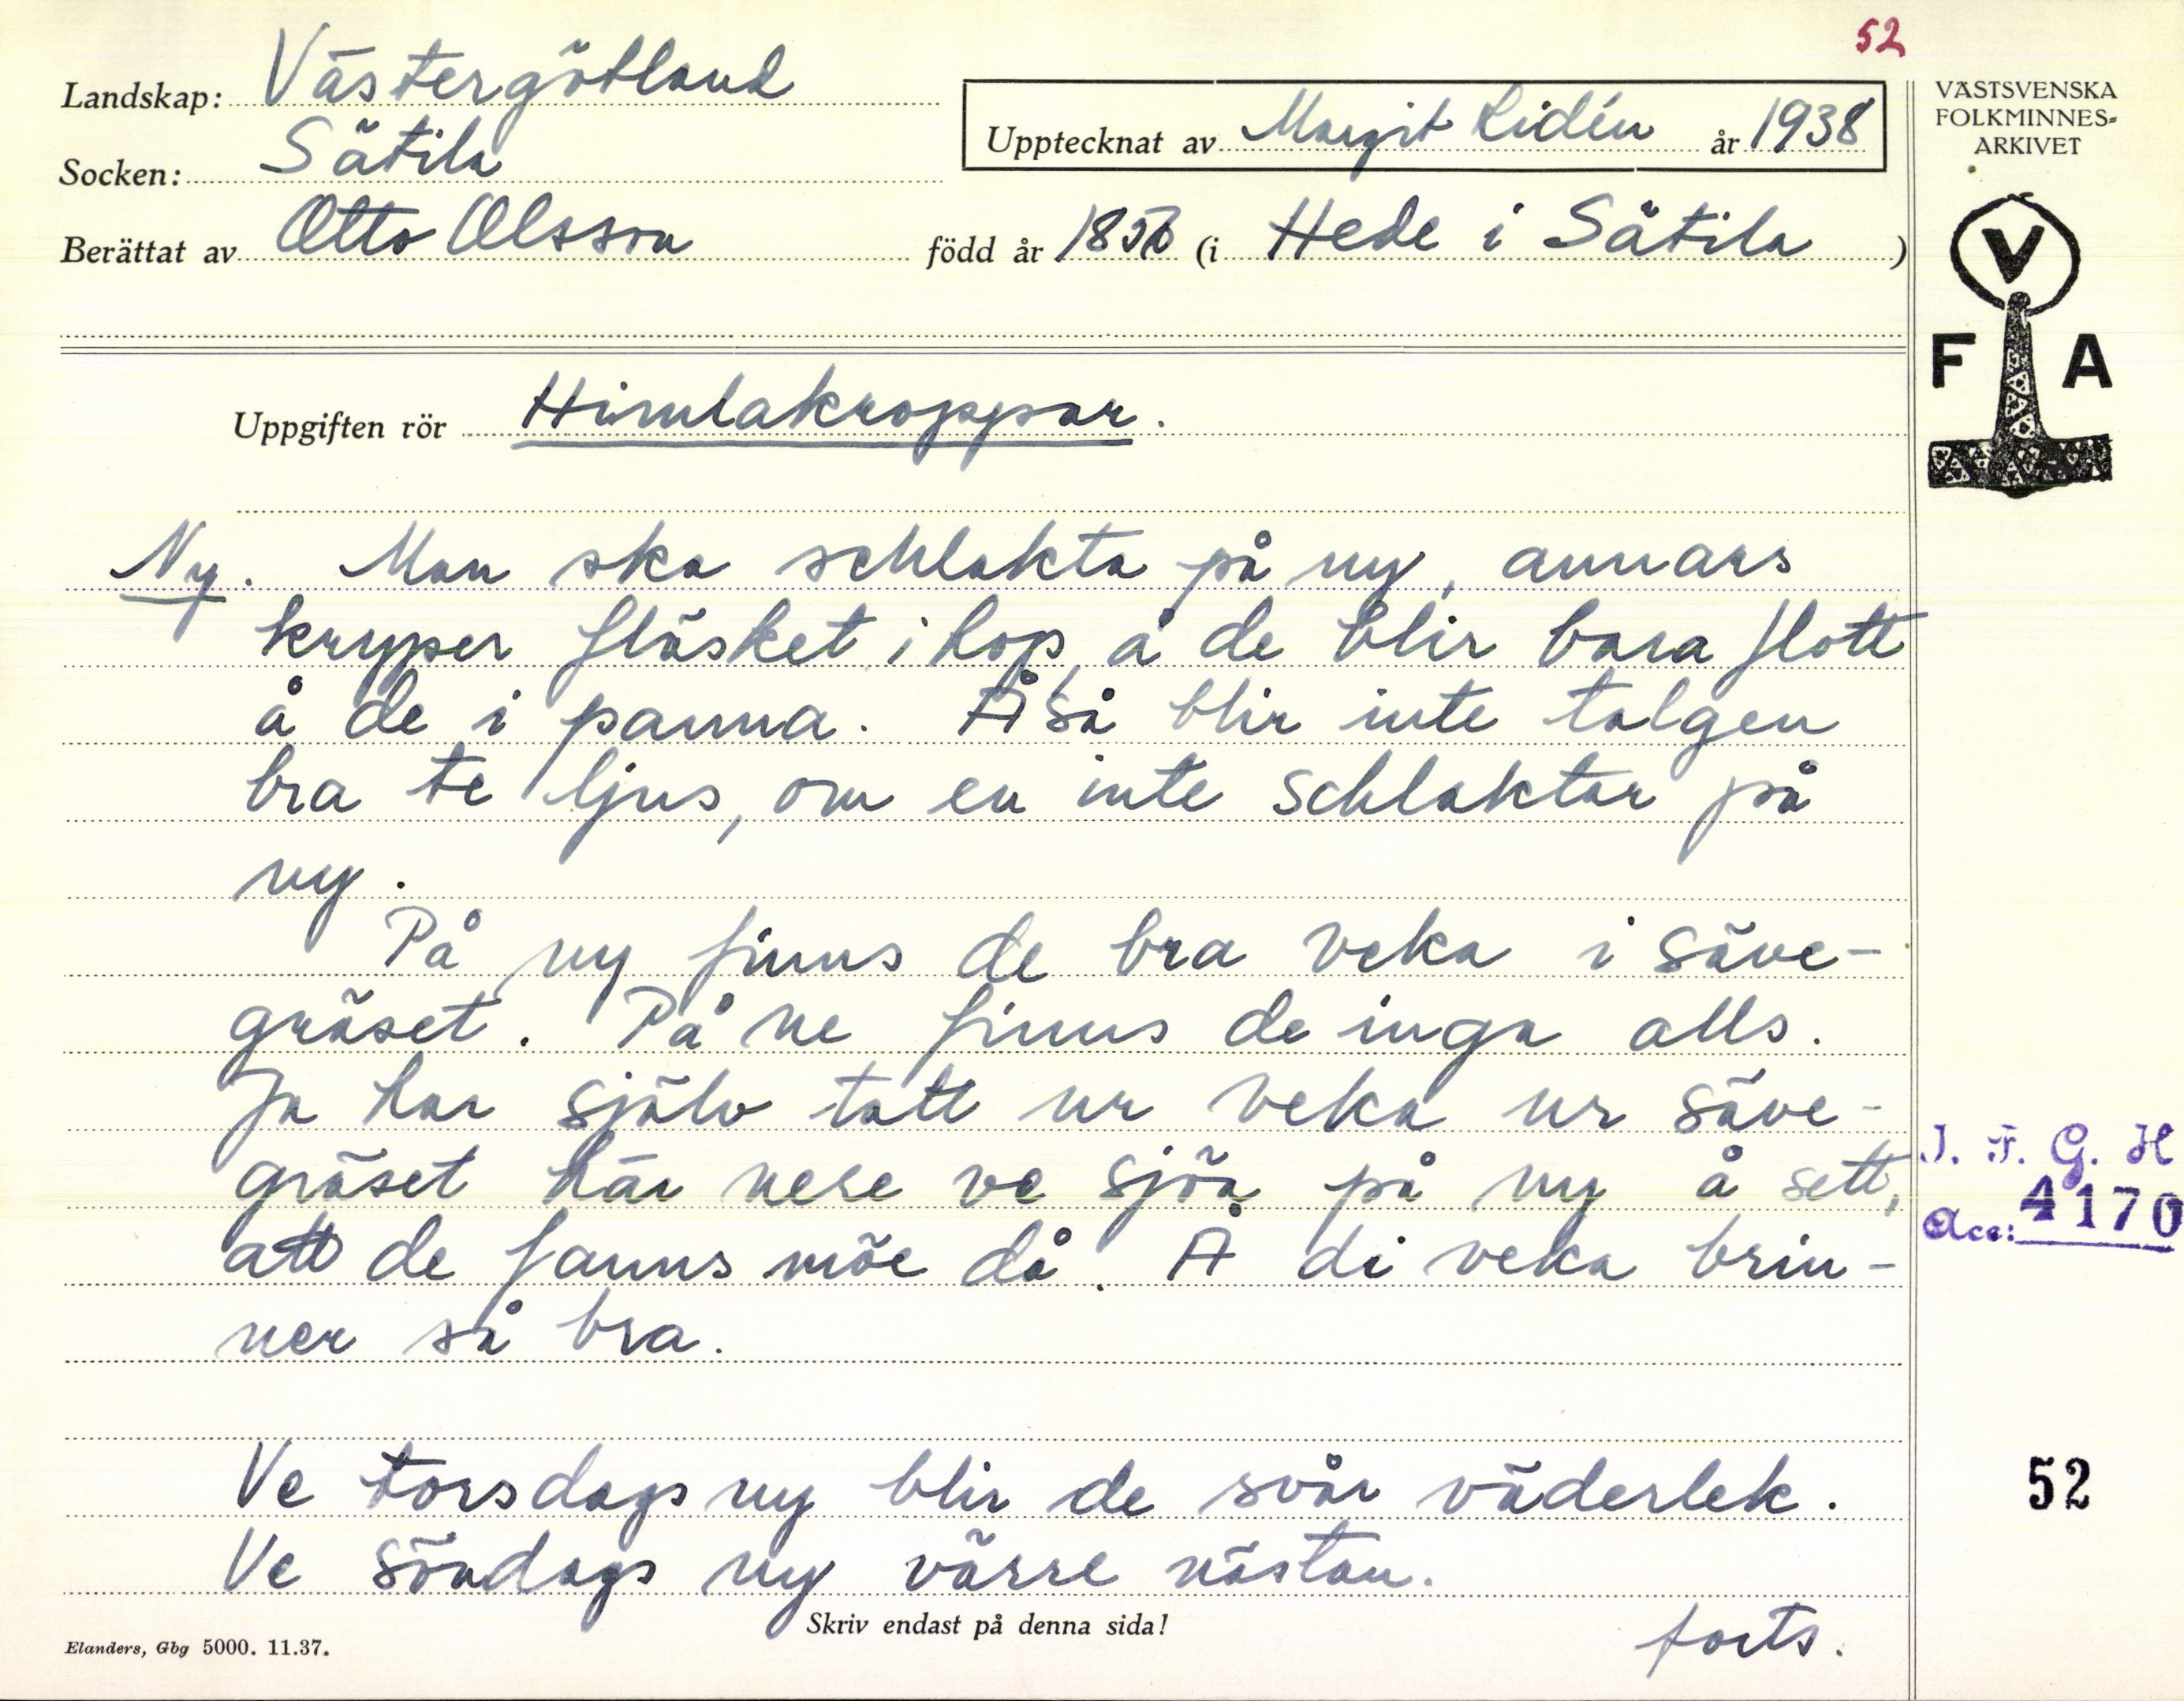 52
Landskap: Västergötland
Socken: Sätila
Upptecknat av Margit Lidén år 1938
Berättat av Otto Olsson född år (i Hede i Sätila)
VÄSTSVENSKA
FOLKMINNES-
ARKIVET
V
F A
Uppgiften rör Himlakroppar.
Ny. Man ska schlakta på ny, annars
kryper fläsket ihop, å de blir bara flott
å de i panna. Å så blir inte talgen
bra te ljus, om en inte schlaktar på
ny.
På ny finns de bra veka i säve-
gräset. På ne finns de inga alls.
Ja har själv tatt ur veka ur säve-
gräset här nere ve sjöa på ny å sett,
att de fanns möe då. Å di veka brin-
ner så bra.
Ve torsdags ny blir de svår väderlek.
Ve söndags ny värre nästan.
forts.
I. F. G. H
Acc: 4170
52
Skriv endast på denna sida!
Elanders, Gbg 5000. 11.37.